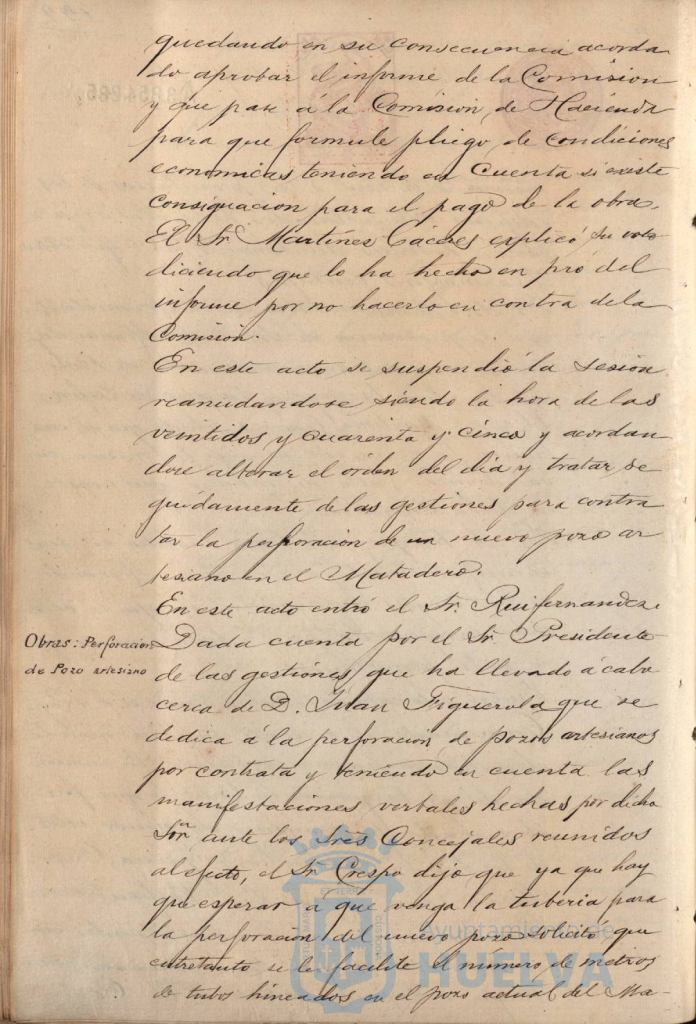 quedando en su consecuencia acorda
do aprobar el informe de la Comision
y que pase á la Comision de Hacienda
para que formule pliego de condiciones
economicas teniendo en cuenta si existe
consignacion para el pago de la obra.
El Sr. Martinez Caceres explicó su voto
diciendo que lo ha hecho en pró del
informe por no hacerlo en contra de la
Comision.
En este acto se suspendió la sesion
reanudandose siendo la hora de las
veintidos y cuarenta y cinco y acordan
dose alterar el órden del dia y tratar se
guidamente de las gestiones para contra
tar la perforacion de un nuevo pozo ar
tesiano en el Matadero.
En este acto entró el Sr. Ruifernandez.
Obras: Perforacion
de Pozo artesiano
Dada cuenta por el Sr. Presidente
de las gestiones que ha llevado á cabo
cerca de D. Juan Figuerola que se
dedica á la perforacion de pozos artesianos
por contrata y teniendo en cuenta las
manifestaciones verbales hechas por dicho
Sor. ante los Sres Concejales reunidos
al efecto, el Sr. Crespo dijo que ya que hay
que esperar a que venga la tuberia para
la perforacion del nuevo pozo solicitó que
entretanto se le facilite el número de metros
de tubos hincados en el pozo actual del Ma-
ayuntamiento de
HUELVA